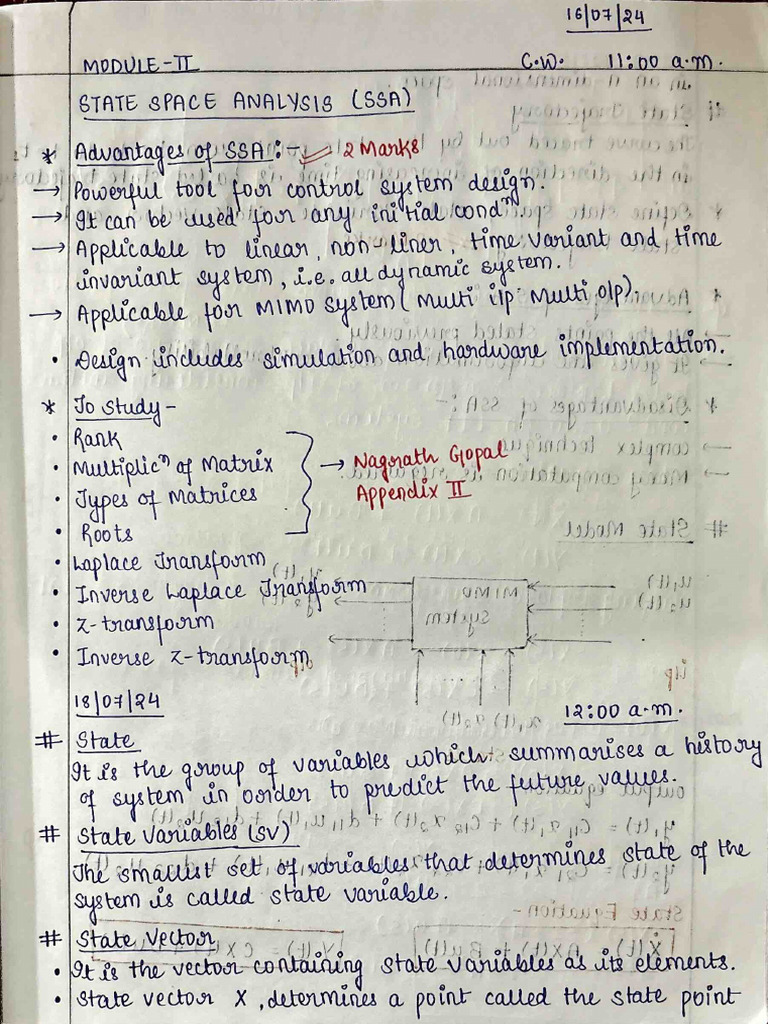 16/07/24
MODULE-II C.W. 11:00 a.m.
STATE SPACE ANALYSIS (SSA)
* Advantages of SSA :- 2 Marks
→ Powerful tool for control system design.
→ It can be used for any initial condⁿ
→ Applicable to linear, non-liner, time variant and time
invariant system, i.e. all dynamic system.
→ Applicable for MIMO system (Multi i/p Multi o/p).
• Design includes simulation and hardware implementation.
* To Study -
• Rank
• Multiplicⁿ of Matrix
• Types of Matrices
• Roots
→ Nagrath Gopal
Appendix II
• Laplace Transform
• Inverse Laplace Transform
• Z-transform
• Inverse Z-transform
18/07/24 12:00 a.m.
# State
It is the group of variables which summarises a history
of system in order to predict the future values.
# State Variables (SV)
The smallest set of variables that determines state of the
system is called state variable.
# State Vector
• It is the vector containing state variables as its elements.
• State vector X, determines a point called the state point